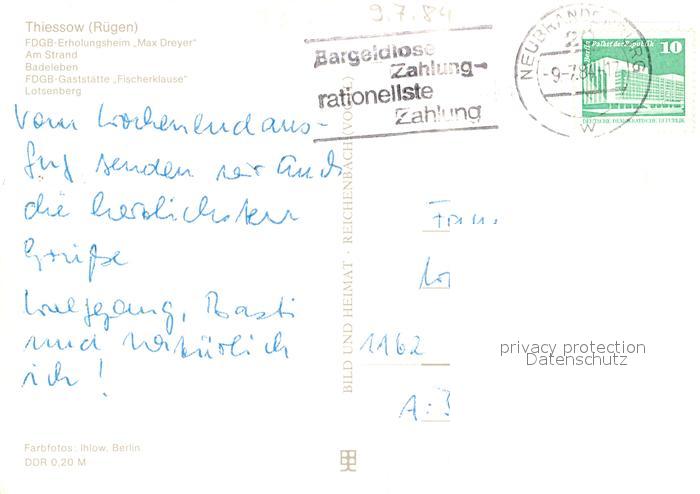 9.7.84
Thiessow (Rügen)
FDGB-Erholungsheim „Max Dreyer"
Am Strand
Badeleben
FDGB-Gaststätte „Fischerklause"
Lotsenberg
Bargeldlose
Zahlung-
rationellste
Zahlung
NEUBRANDENBURG
-9-7.84
W
Palast der Republik
10
DEUTSCHE DEMOKRATISCHE REPUBLIK
Vom Wochenendaus-
flug senden wir Euch
die herzlichsten
Grüße
Wolfgang, Basti
und natürlich
ich!
BILD UND HEIMAT · REICHENBACH (VOGTL)
1162
privacy protection
Datenschutz
Farbfotos: Ihlow, Berlin
DDR 0,20 M